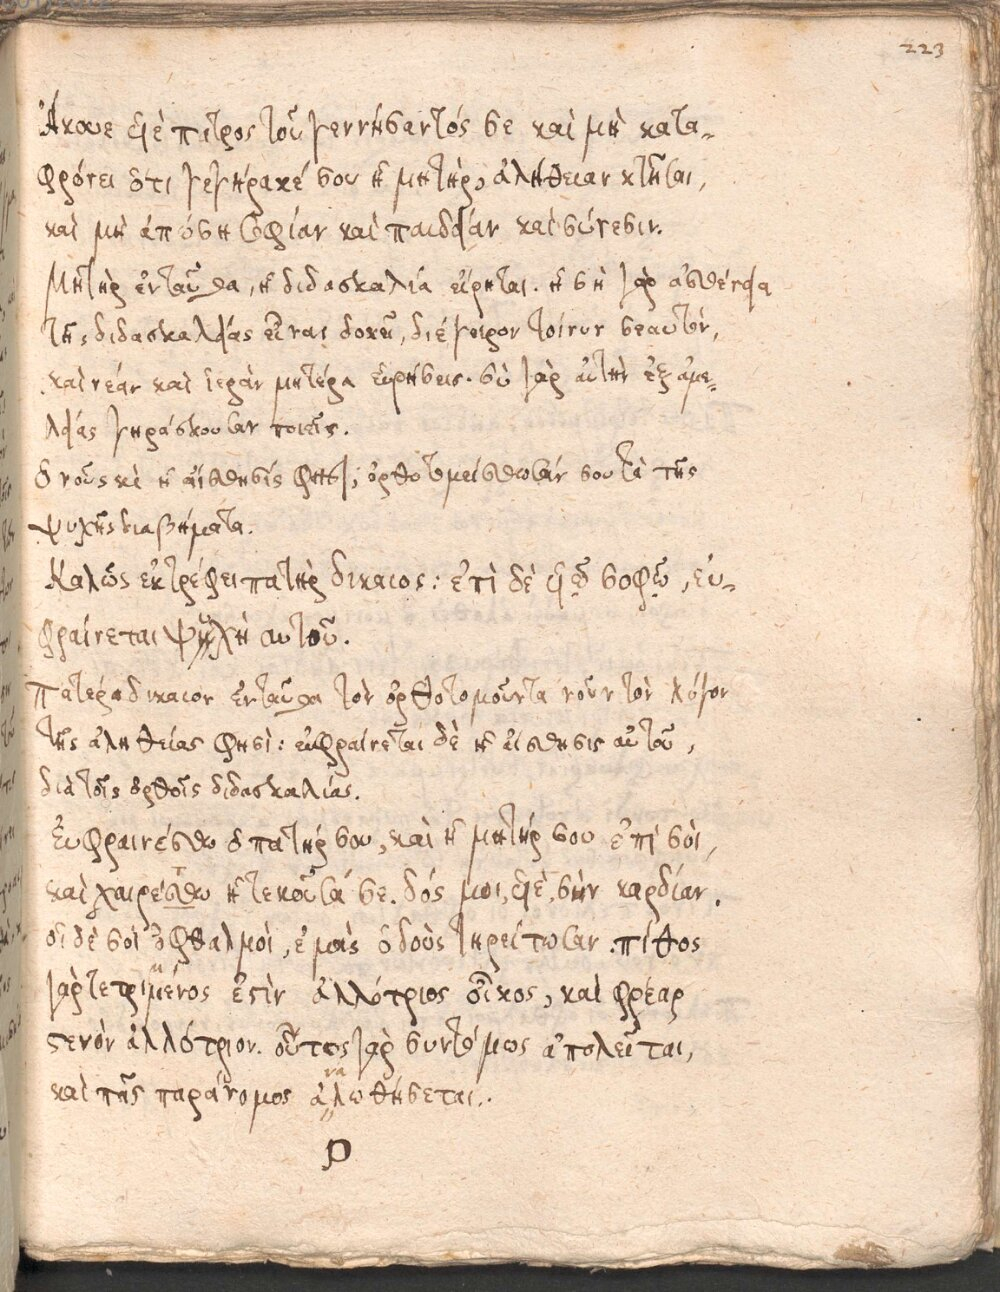 223
Ἄκουε υἱὲ πατρος τοῦ γεννήσαντός σε καὶ μὴ κατα-
φρόνει ὅτι γεγήρακέ σου ἡ μητὴρ, ἀλήθειαν κτῆσαι,
καὶ μὴ ἀπώσῃ σοφίαν καὶ παιδείαν καὶ σύνεσιν.
Μήτηρ ἐνταῦθα, ἡ διδασκαλία εἴρηται. ἡ σὴ γὰρ ἀσθένεια
τῆς διδασκαλείας εἶναι δοκεῖ, διέγειρον τοίνυν σεαυτὸν,
καὶ νέαν καὶ ἱερὰν μητέρα εὑρήσεις. σὺ γὰρ αὐτὴν ἐξ ἀμε-
λείας γηράσκουσαν ποιεῖς.
ὁ νοῦς καὶ ἡ αἴσθησίς φησι; ὀρθοτομείσθωσάν σου τὰ τῆς
ψυχῆς διαβήματα.
Καλῶς ἐκτρέφει πατὴρ δίκαιος: ἐπὶ δὲ υἱῷ σοφῷ, εὐ-
φραίνεται ψυχὴ αὐτοῦ.
Πατέρα δίκαιον ἐνταῦθα τὸν ὀρθοτομοῦντα νοῦν τὸν λόγον
τῆς ἀληθείας φησὶ: εὐφραίνεται δὲ ἡ αἴσθησις αὐτοῦ,
διὰ τοῖς ὀρθοῖς διδασκαλίας.
Εὐφραινέσθω ὁ πατήρ σου, καὶ ἡ μήτηρ σου ἐπί σοι,
καὶ χαιρέσθω ἡ τεκοῦσά σε. δός μοι, υἱὲ, σὴν καρδίαν.
οἱ δὲ σοὶ ὀφθαλμοὶ, ἐμὰς ὁδοὺς τηρείτωσαν. πίθος
γὰρ τετριμμένος ἐστὶν ἀλλότριος οἶκος, καὶ φρέαρ
στενὸν ἀλλότριον. οὗτος γὰρ συντόμως ἀπολεῖται,
καὶ πᾶς παράνομος ἀναλωθήσεται.